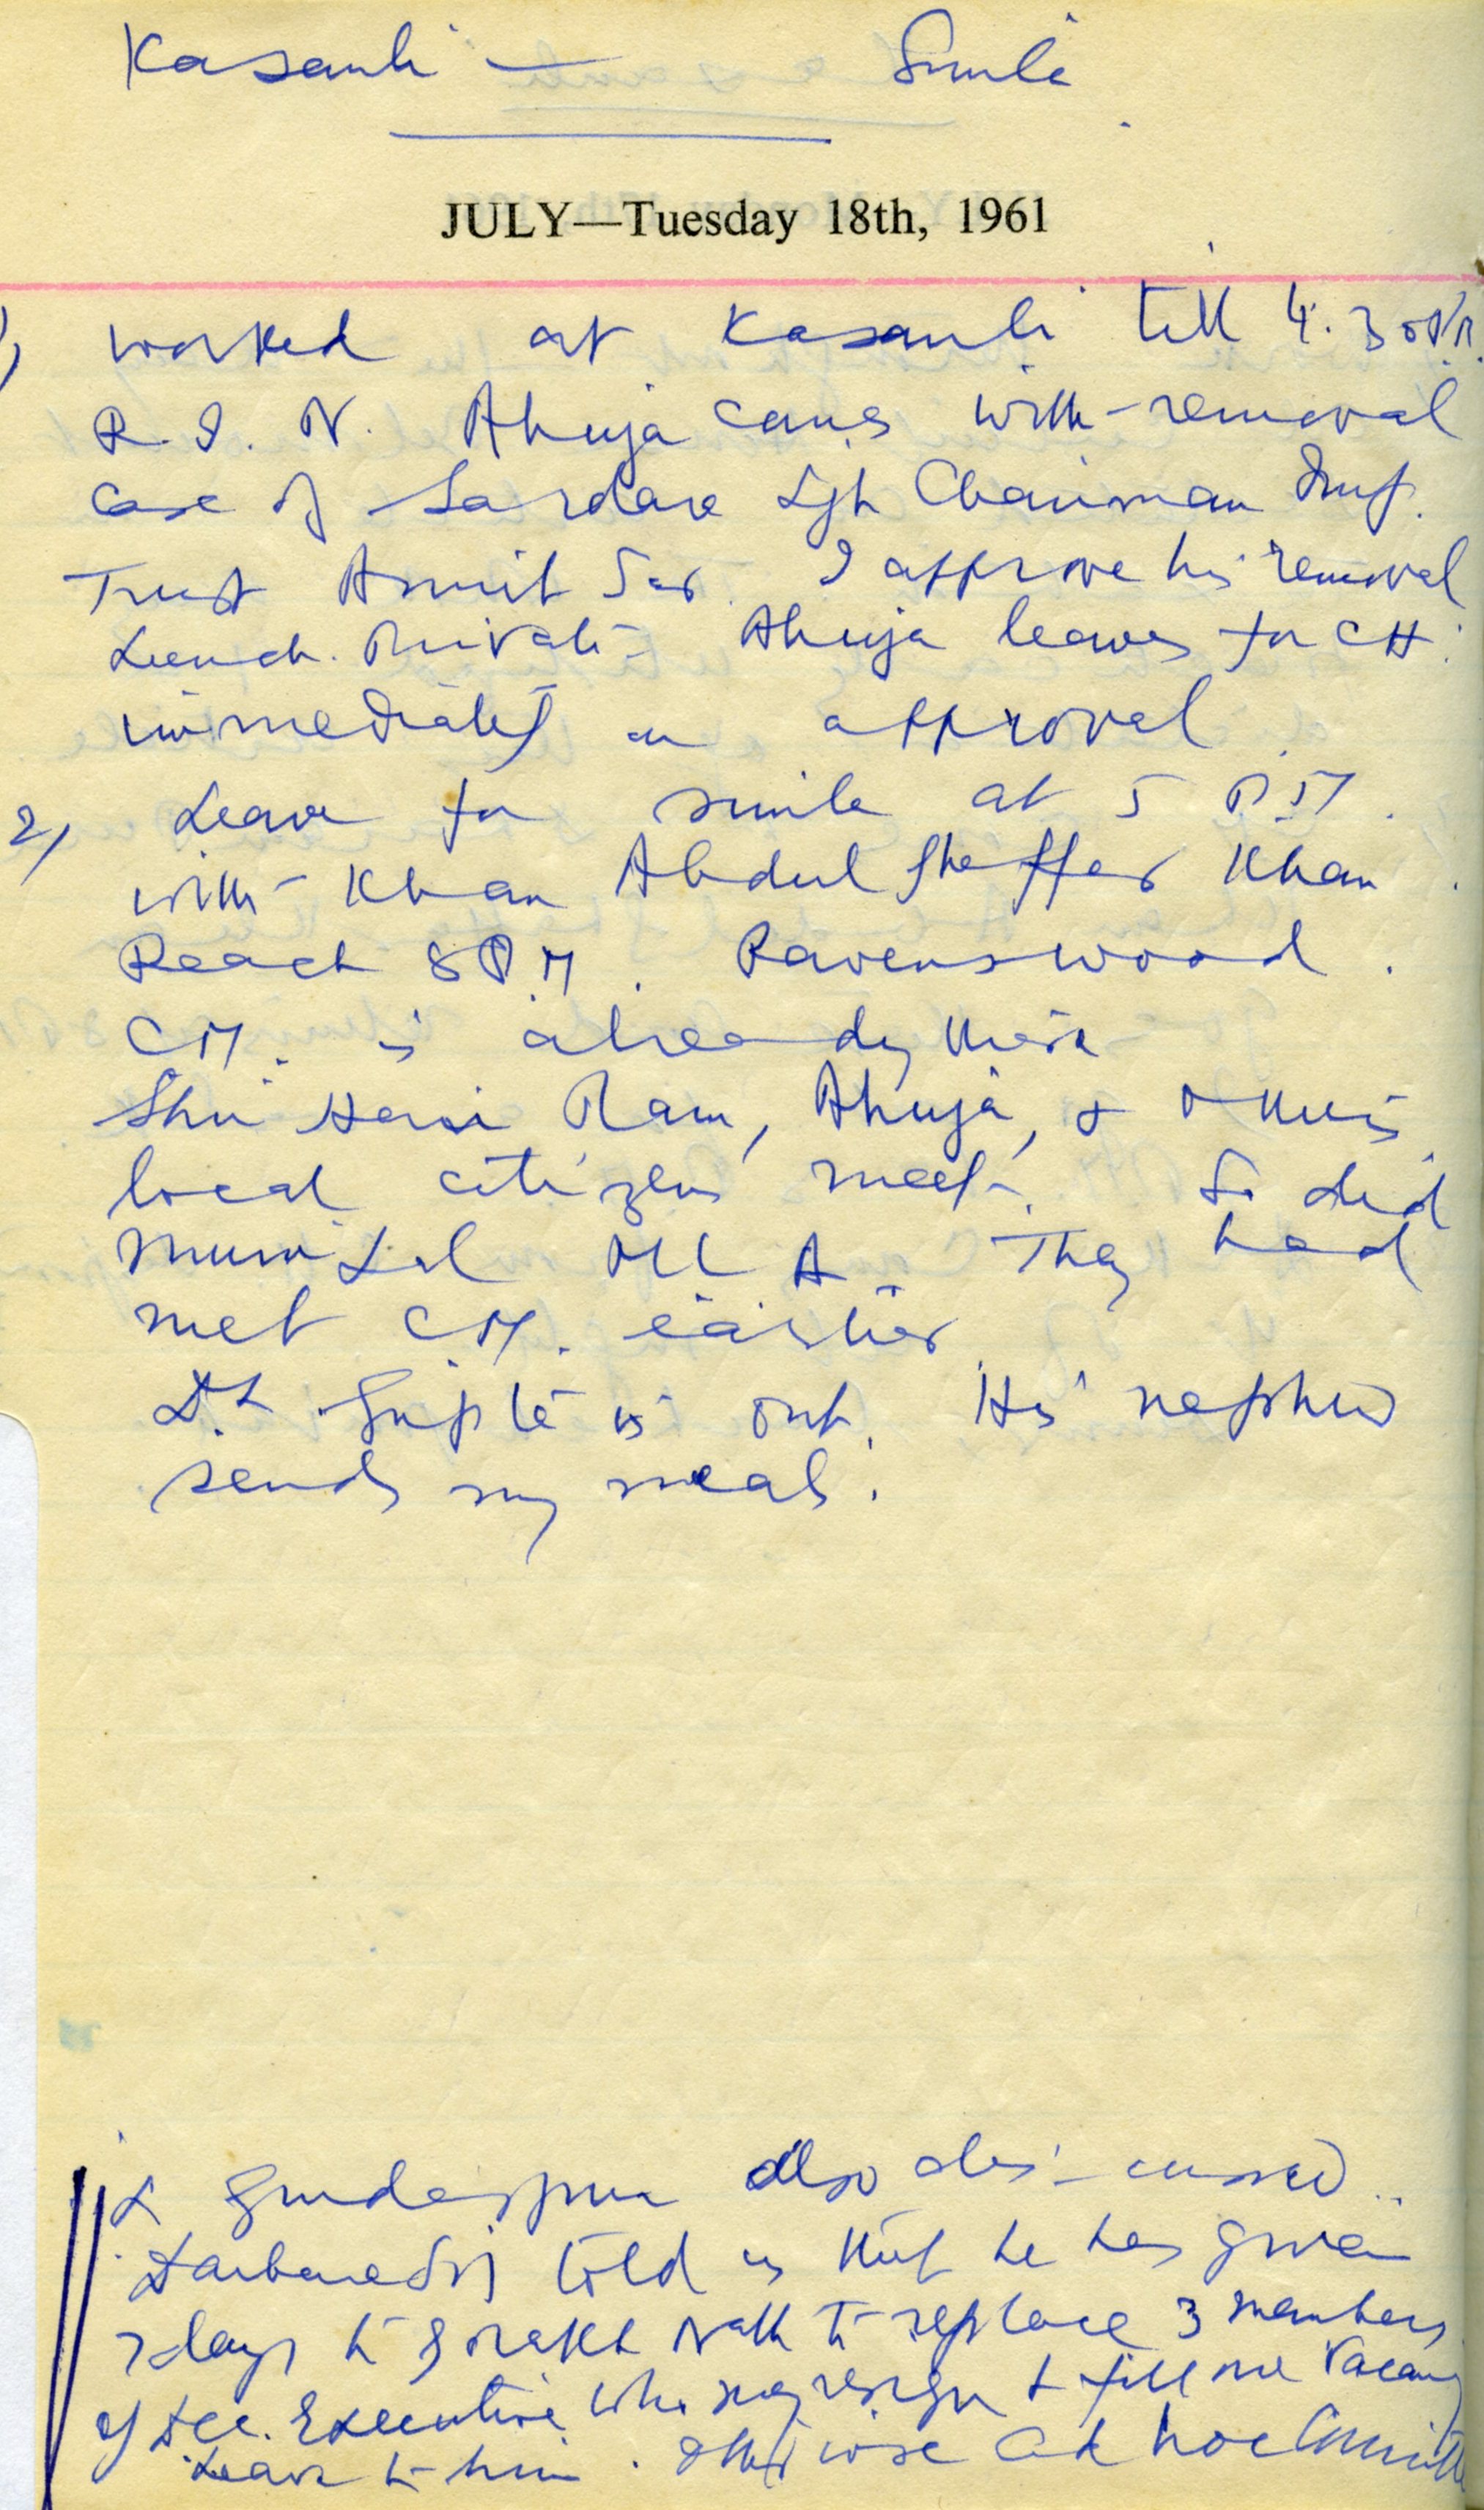 Kasauli — Simla
JULY—Tuesday 18th, 1961
1) Worked at Kasauli till 4.30 PM.
R. I. N. Ahuja comes with removal
case of Sardara Sgh Chairman Imp.
Trust Amrit Sar. I approve his removal
Lunch. Private Ahuja leaves for CH.
immediately on approval.
2) Leave for Simla at 5 P.M.
with Khan Abdul Ghaffar Khan.
Reach 8 P.M. Ravenswood.
C.M. is already there
Shri Hari Ram, Ahuja, & others
local citizens meet. So did
Muni Lal MLA. They had
met C.M. earlier
Dr Gupta is out. His nephew
sends my meals.
& Gurdaspur also discussed.
Darbara Singh told us that he has given
7 days to Gorakh Nath to replace 3 members
of DCC. Executive who may resign & fill one vacancy
Leave to him. Otherwise Ad hoc Committee